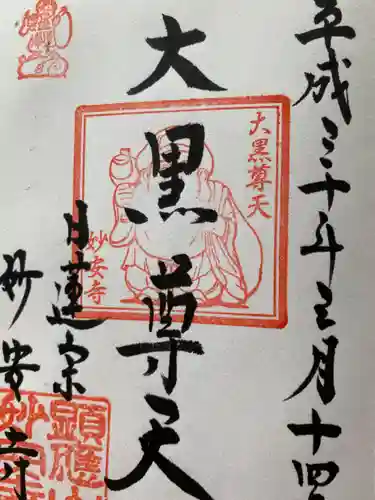 平成三十年三月十四
大黒尊天
大黒尊天
妙安寺
日蓮宗
妙安寺
顕應山